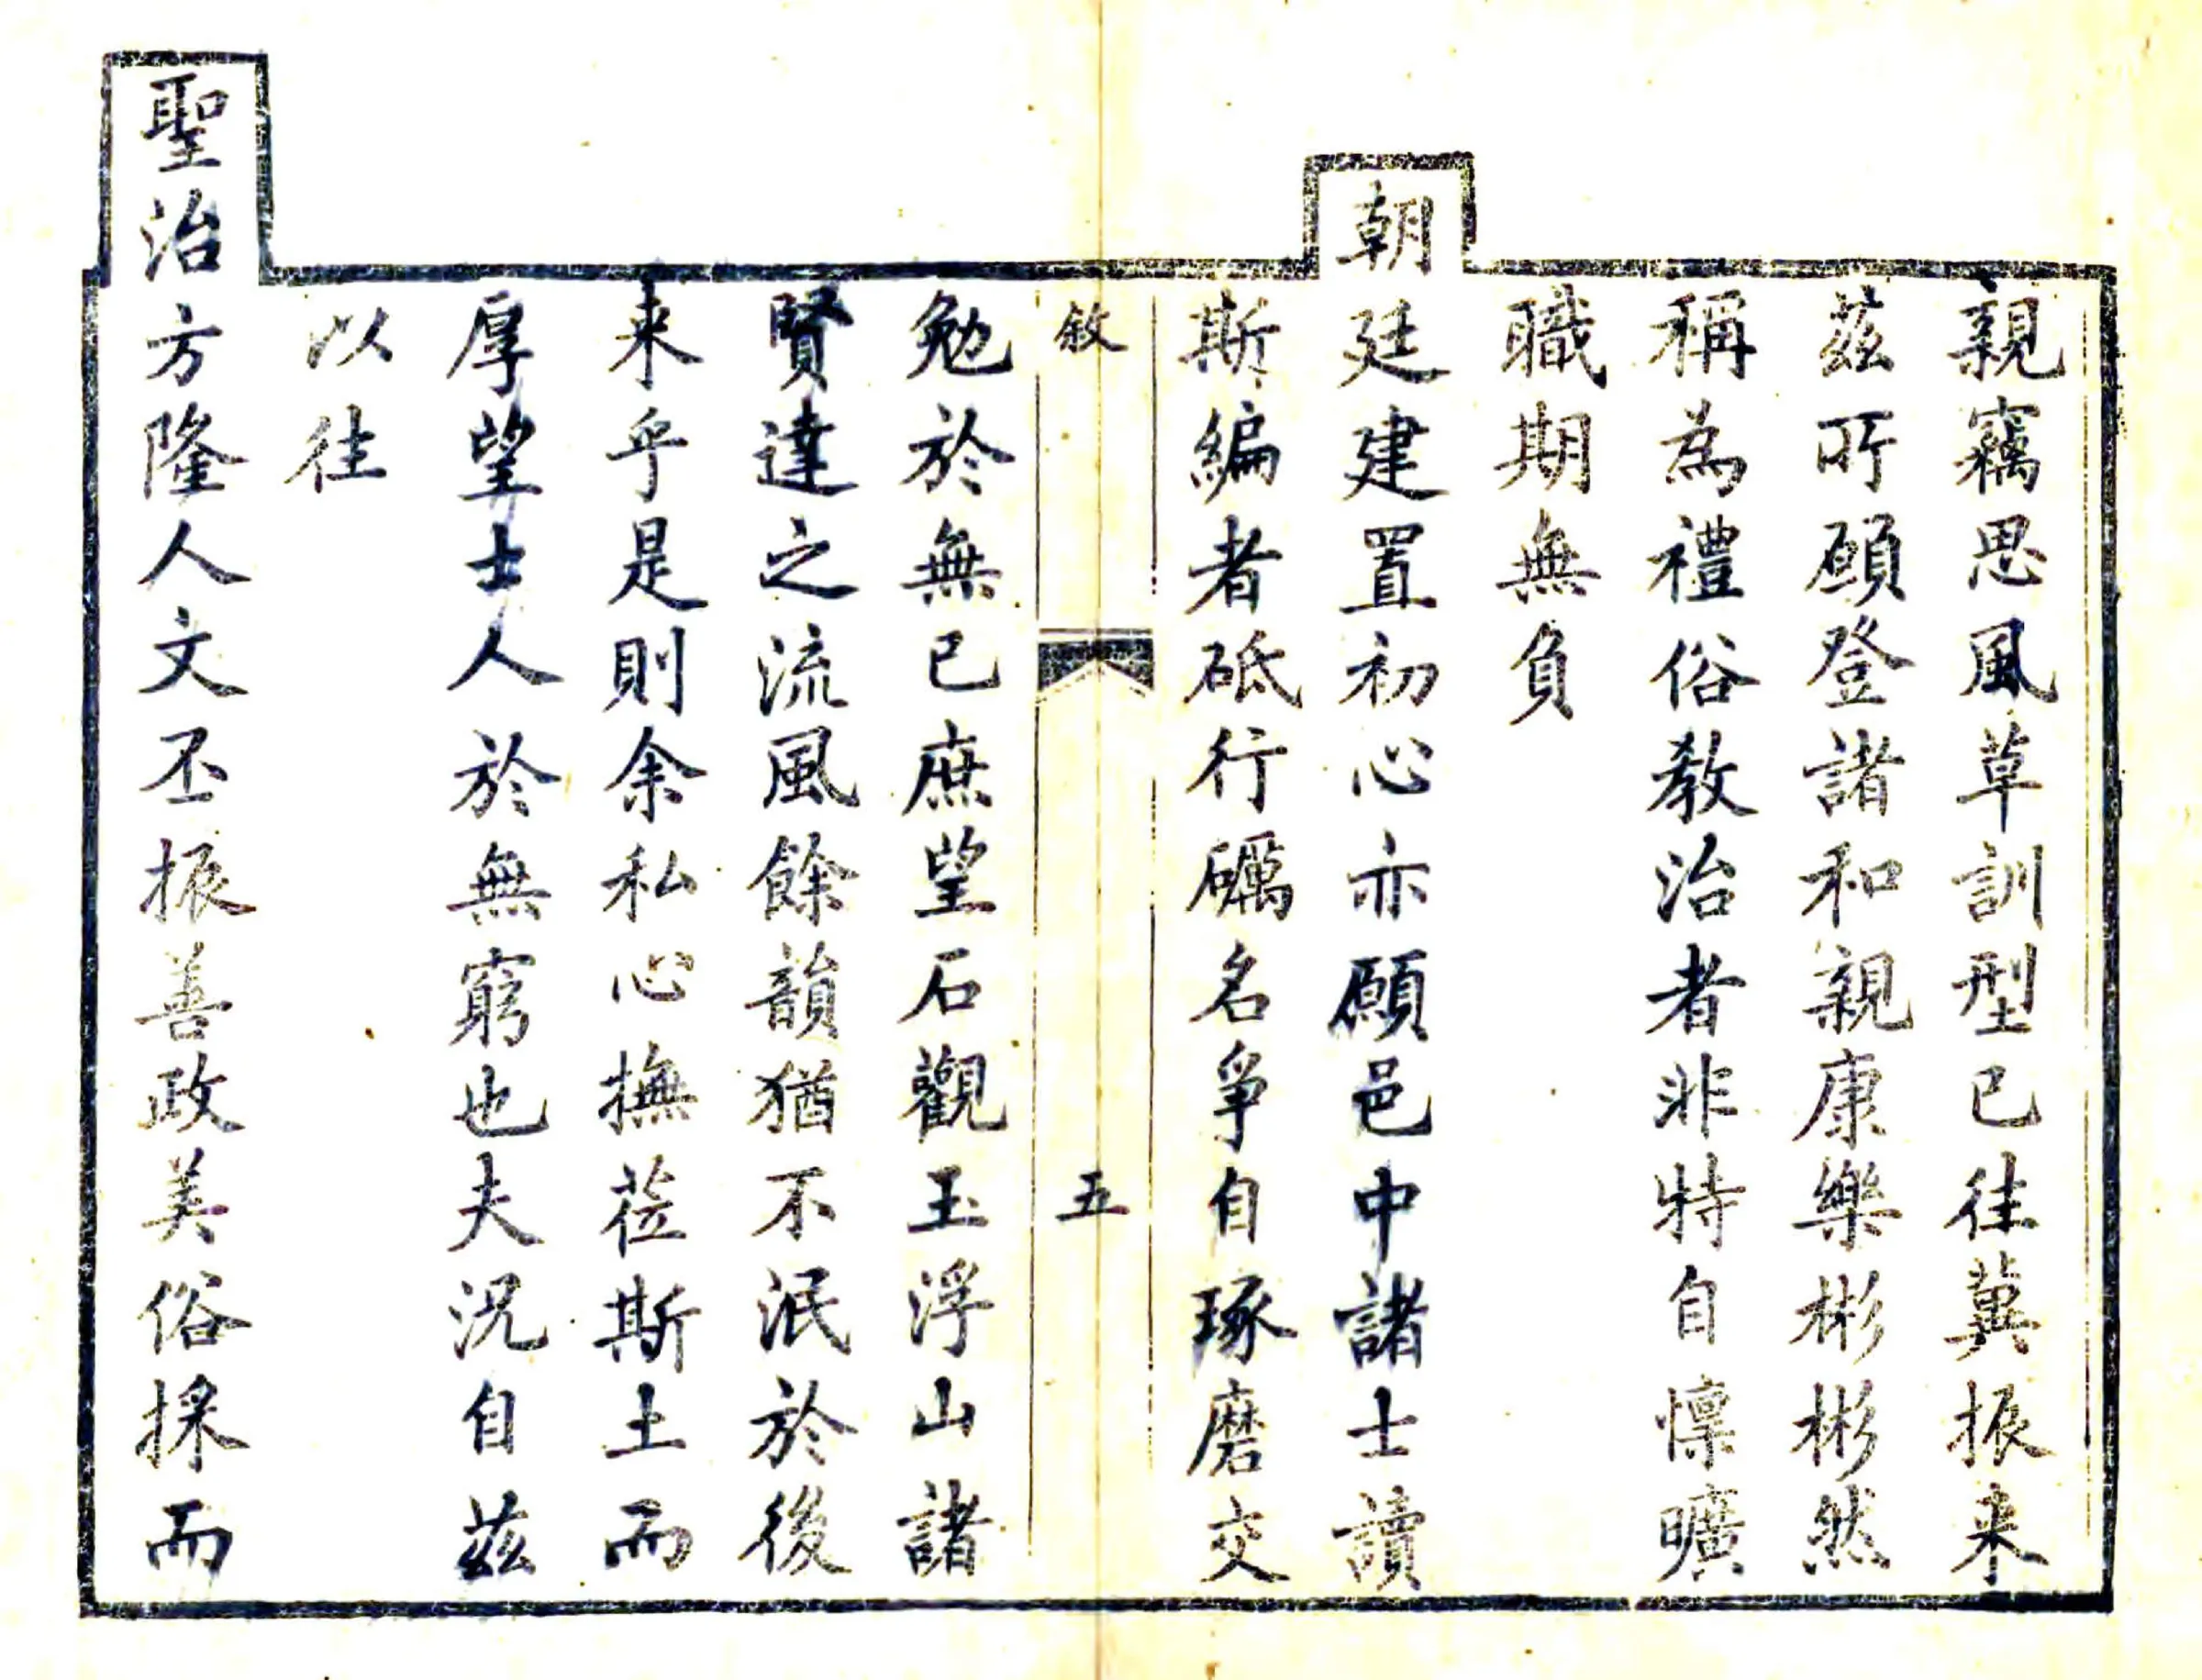 親竊思風草訓型已往冀振来
茲所願登諸和親康樂彬彬然
稱為禮俗教治者非特自懍曠
職期無負
朝廷建置初心亦願邑中諸士讀
斯編者砥行礪名爭自琢磨交
敘 五
勉於無已庶望石觀玉浮山諸
賢達之流風餘韻猶不泯於後
来乎是則余私心撫莅斯土而
厚望士人於無窮也夫況自茲
以往
聖治方隆人文丕振善政美俗採而